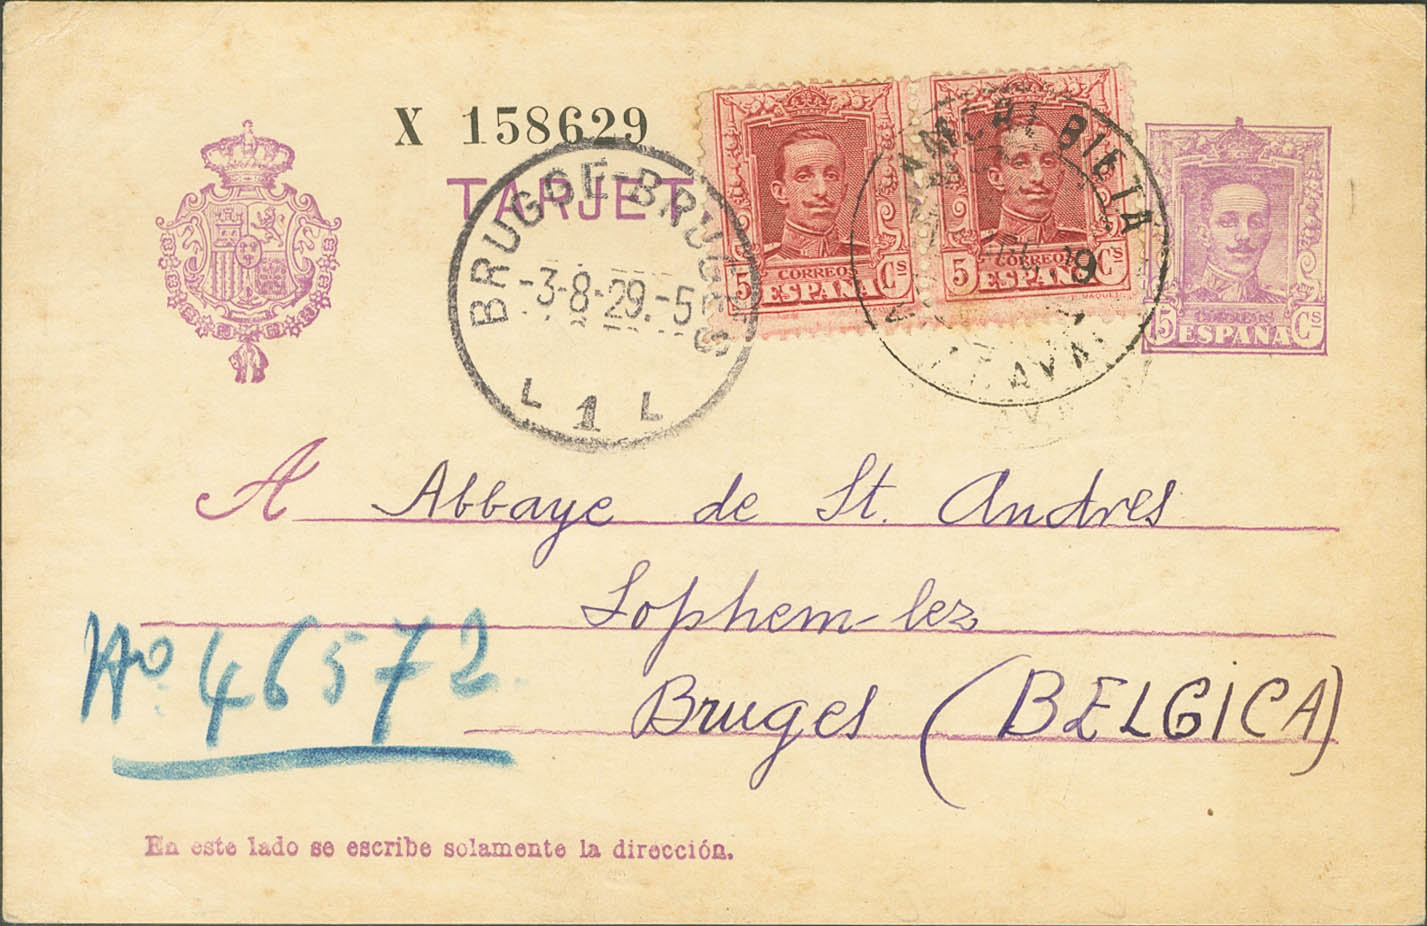 X 158629
TARJET
BRUGGE-BRUGES
-3-8-29.-5
L 1 L
5 CORREOS Cs
ESPAÑA
5 CORREOS Cs
ESPAÑA
BIETA
15 CORREOS Cs
ESPAÑA
A Abbaye de St. Andres
Lophem-lez
Bruges (BELGICA)
Nº 46572
En este lado se escribe solamente la dirección.